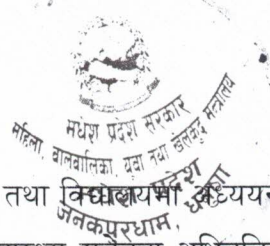 मधेश प्रदेश सरकार
महिला, बालबालिका, युवा तथा खेलकुद मन्त्रालय
मधेश प्रदेश
जनकपुरधाम, धनुषा
तथा विद्यालयमा अध्ययन